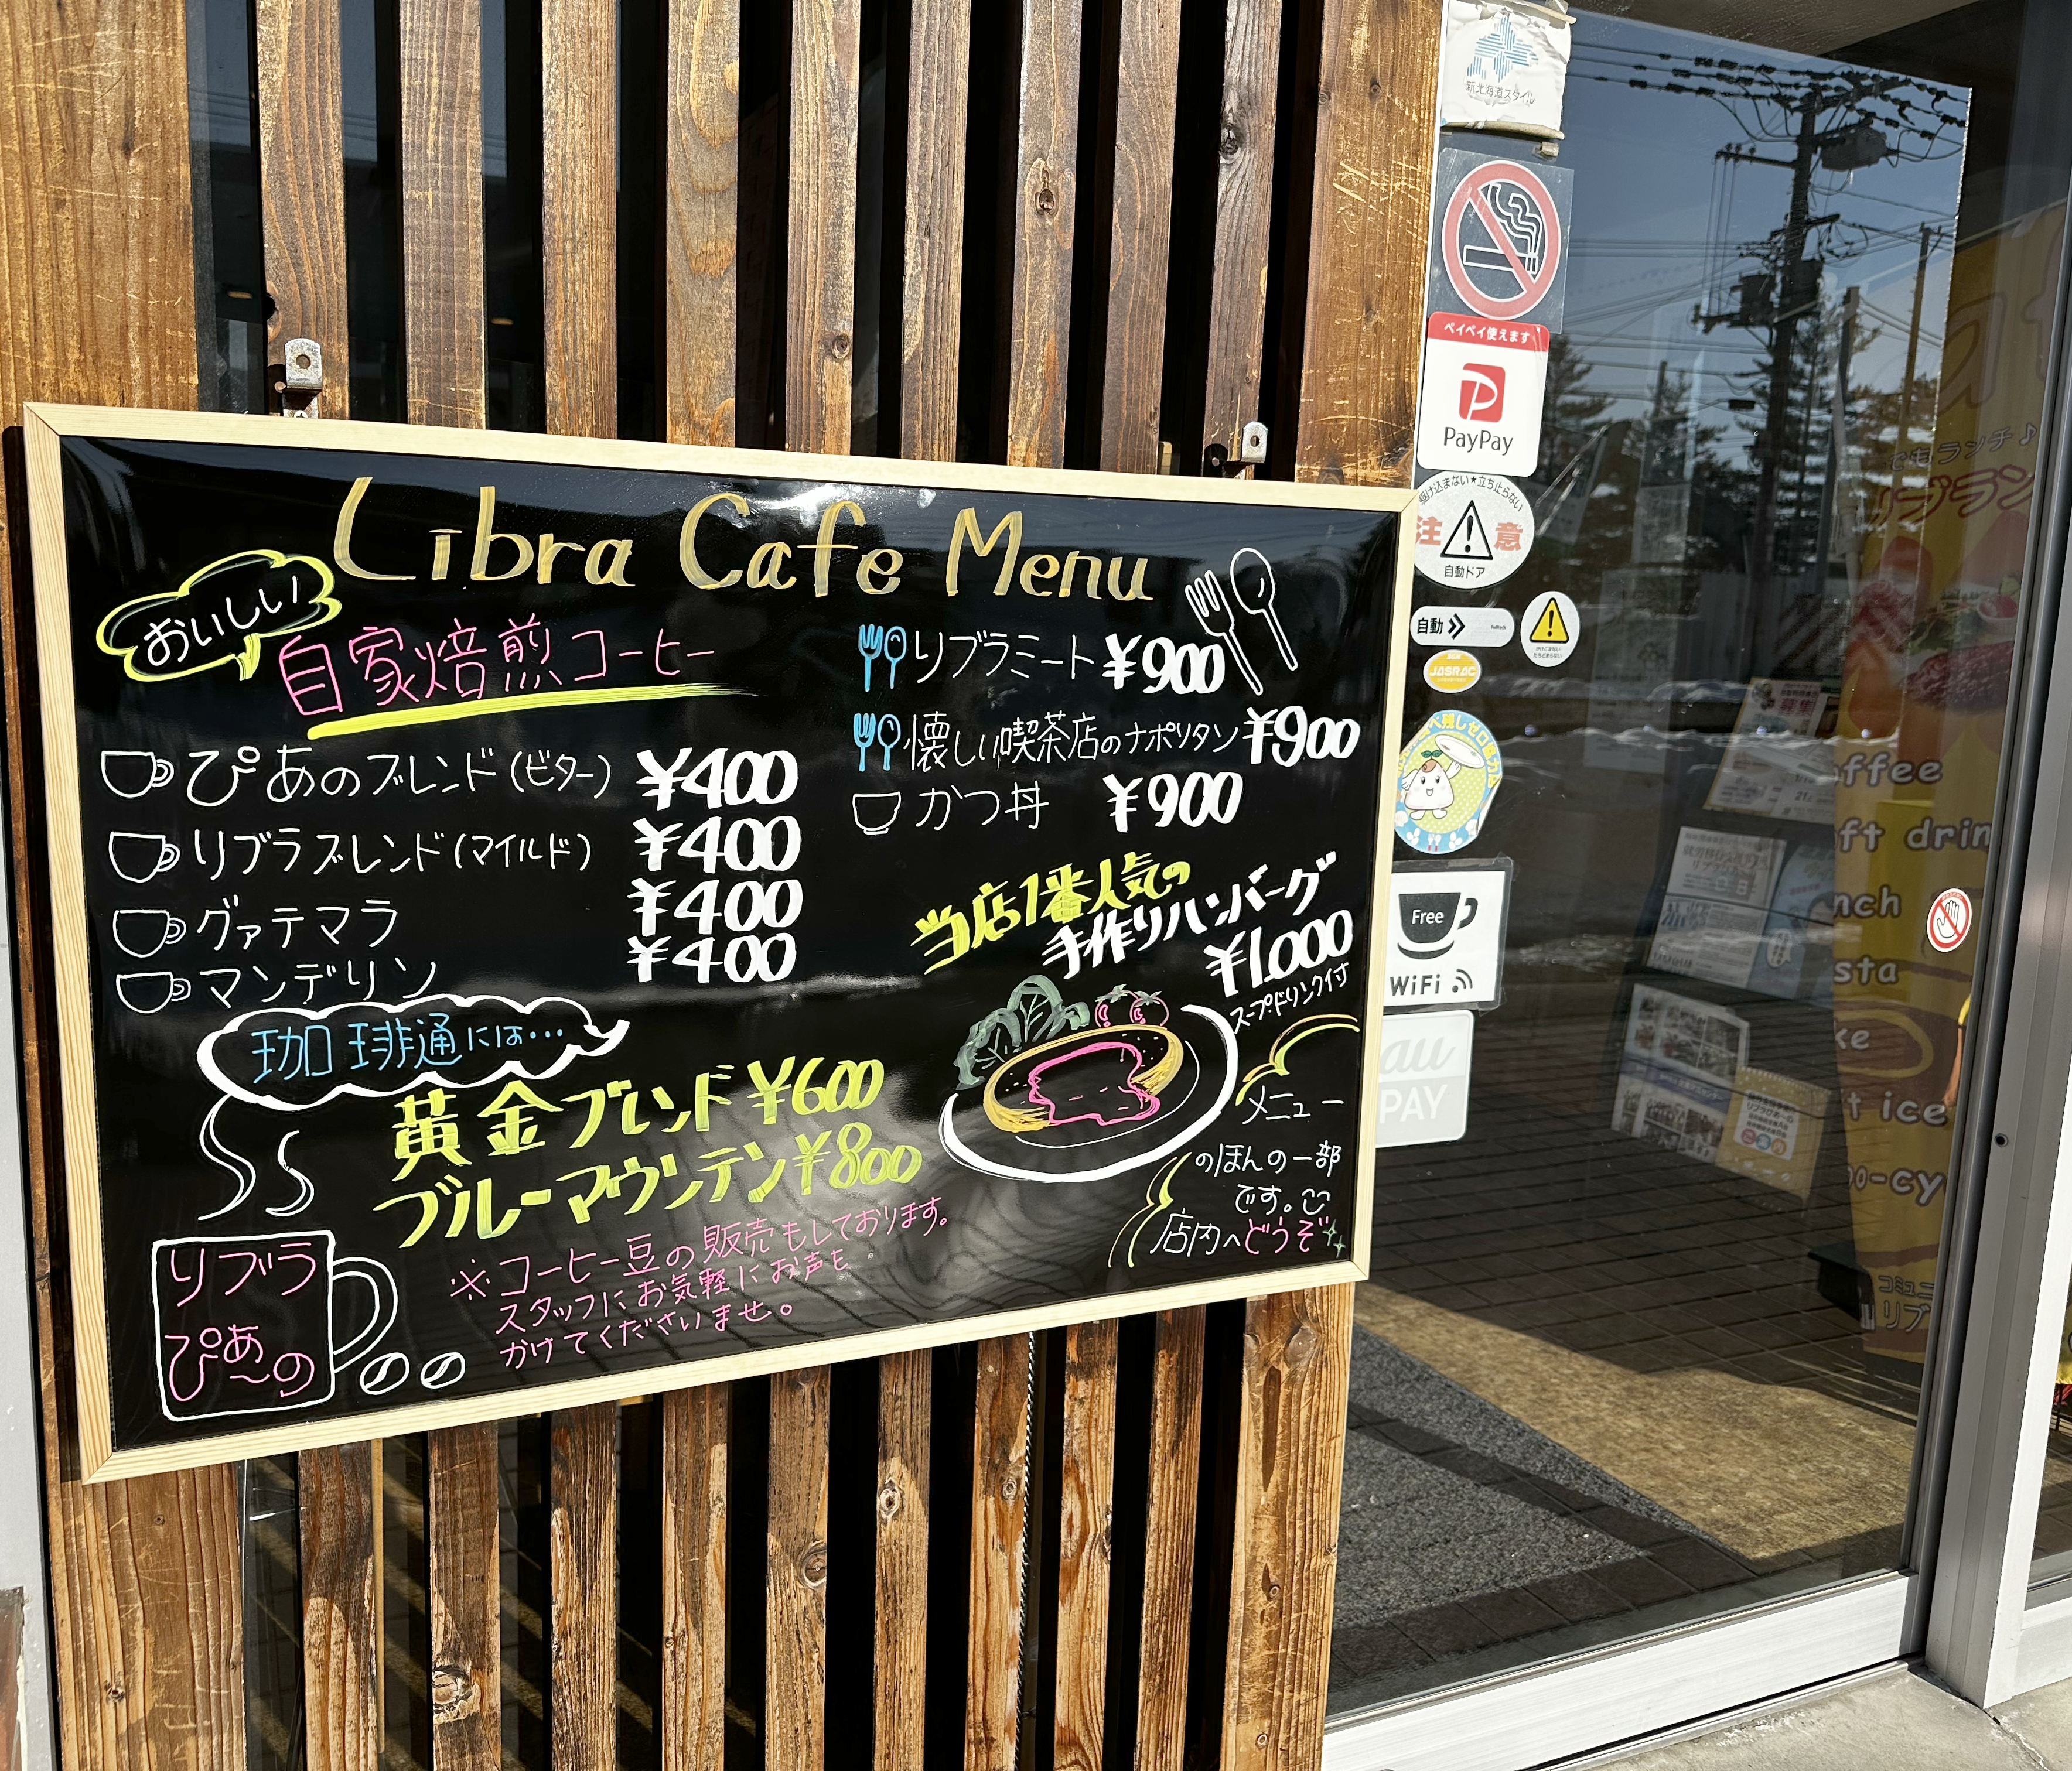 Libra Cafe Menu
おいしい
自家焙煎コーヒー
ぴあのブレンド(ビター) ¥400
リブラブレンド(マイルド) ¥400
グァテマラ ¥400
マンデリン ¥400
珈琲通には…
黄金ブレンド ¥600
ブルーマウンテン ¥800
※コーヒー豆の販売もしております。
スタッフにお気軽にお声を
かけてくださいませ。
リブラ
ぴあ〜の
リブラミート ¥900
懐しい喫茶店のナポリタン ¥900
かつ丼 ¥900
当店1番人気の
手作りハンバーグ
¥1.000
スープ・ドリンク付
メニュー
のほんの一部
です。
店内へどうぞ
新北海道スタイル
ペイペイ使えます
PayPay
駆け込まない★立ち止らない
注意
自動ドア
自動
JASRAC
Free
WiFi
au
PAY
でもランチ♪
リブラン
ffee
ft drin
nch
sta
ke
t ice
コミュニ
リブ